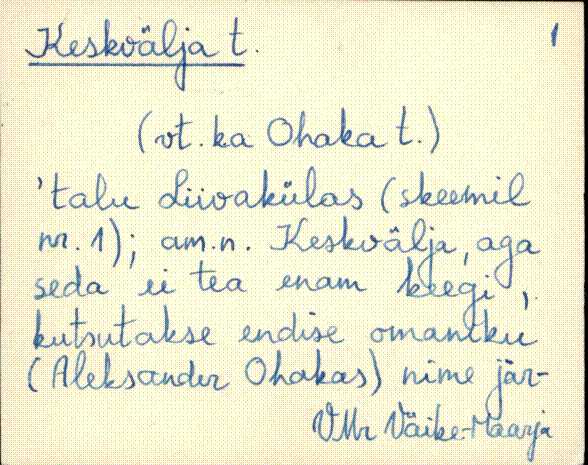 Keskvälja t. 1
(vt. ka Ohaka t.)
'talu Liivakülas (skeemil
nr. 1); am.n. Keskvälja, aga
seda ei tea enam keegi,
kutsutakse endise omaniku
(Aleksander Ohakas) nime jär-
VMr Väike-Maarja